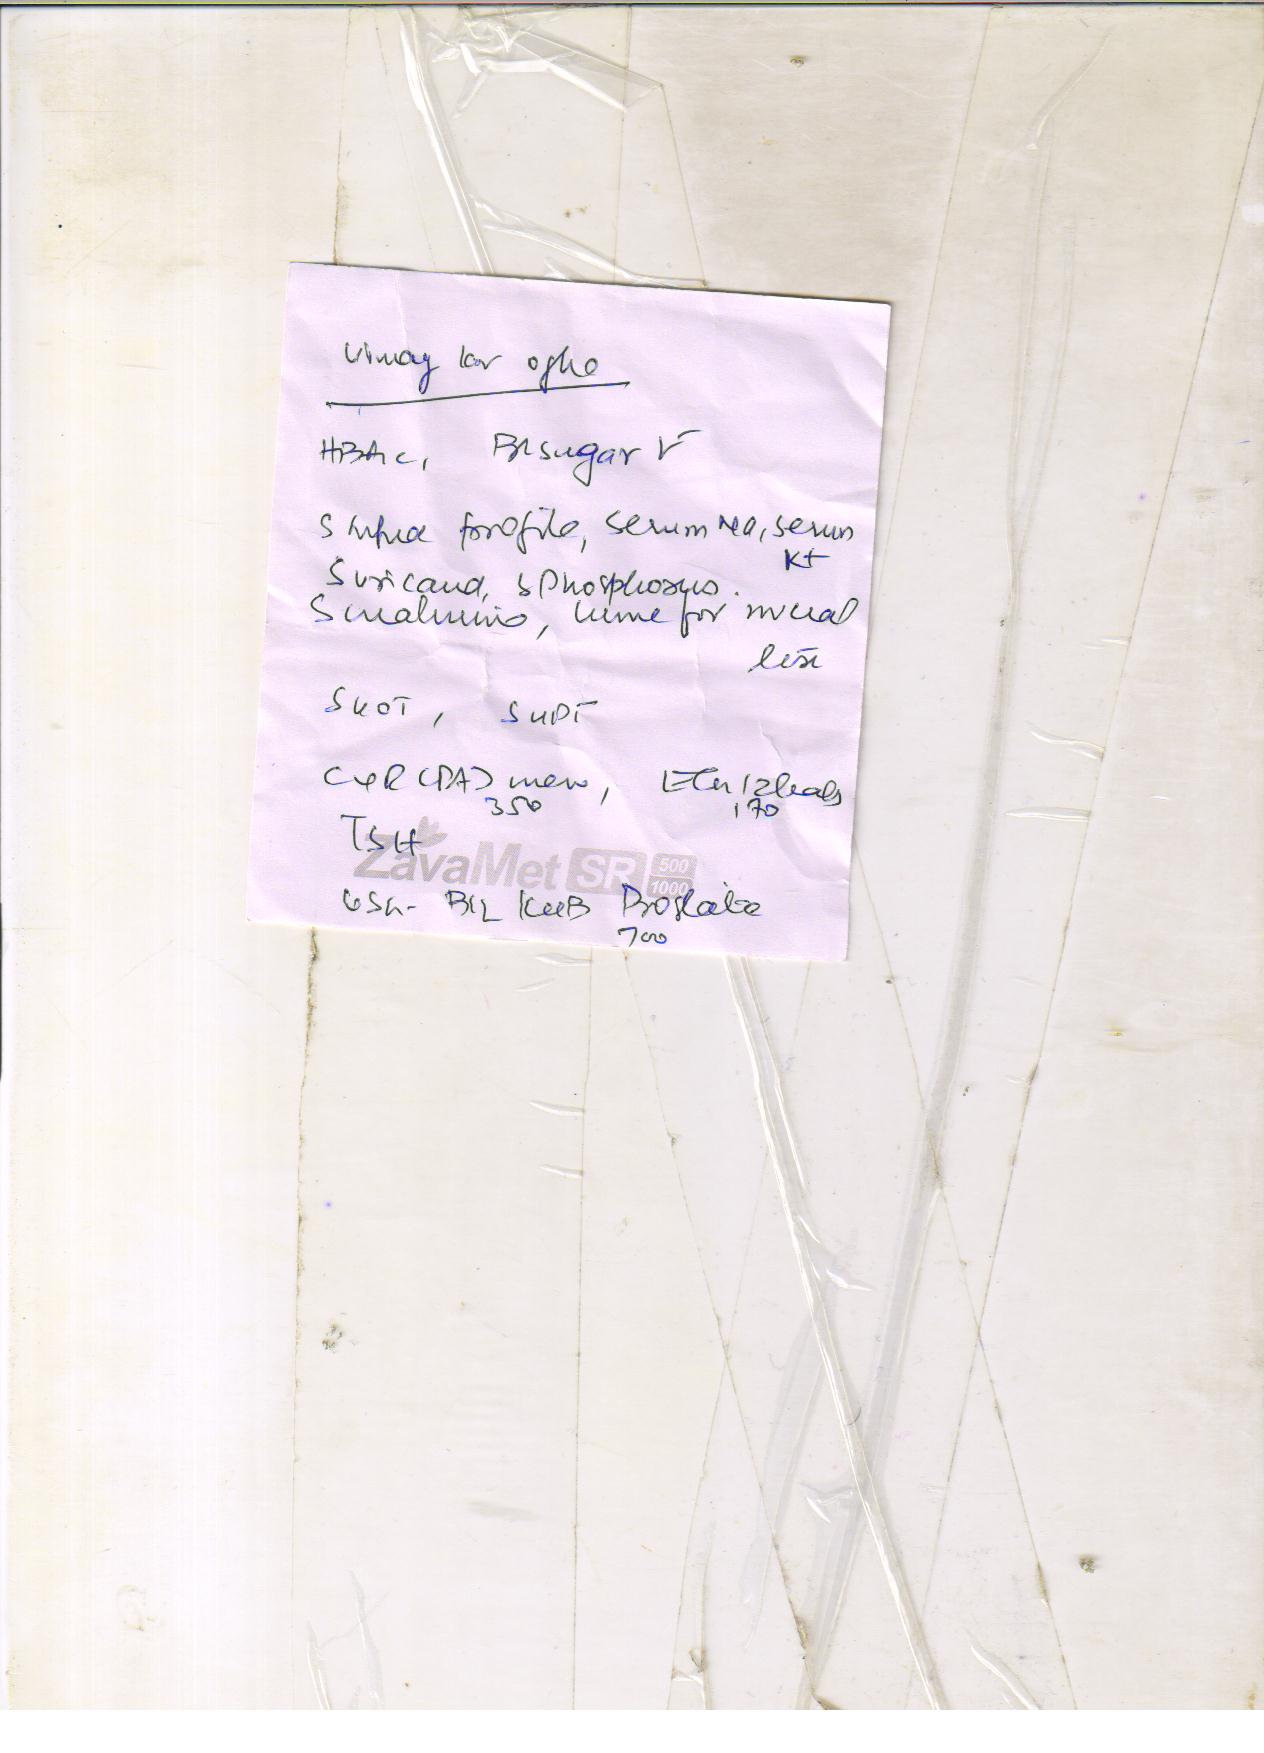 HBA1c, Bl sugar F
S profile, Serum Na, Serum
K+
S uric acid, S Phosphorus.
S , urine for
test
SGOT, SGPT
CXR (PA) view, ECG 12 leads
350 170
TSH
ZavaMet SR 500
1000
USG- KUB Prostate
700